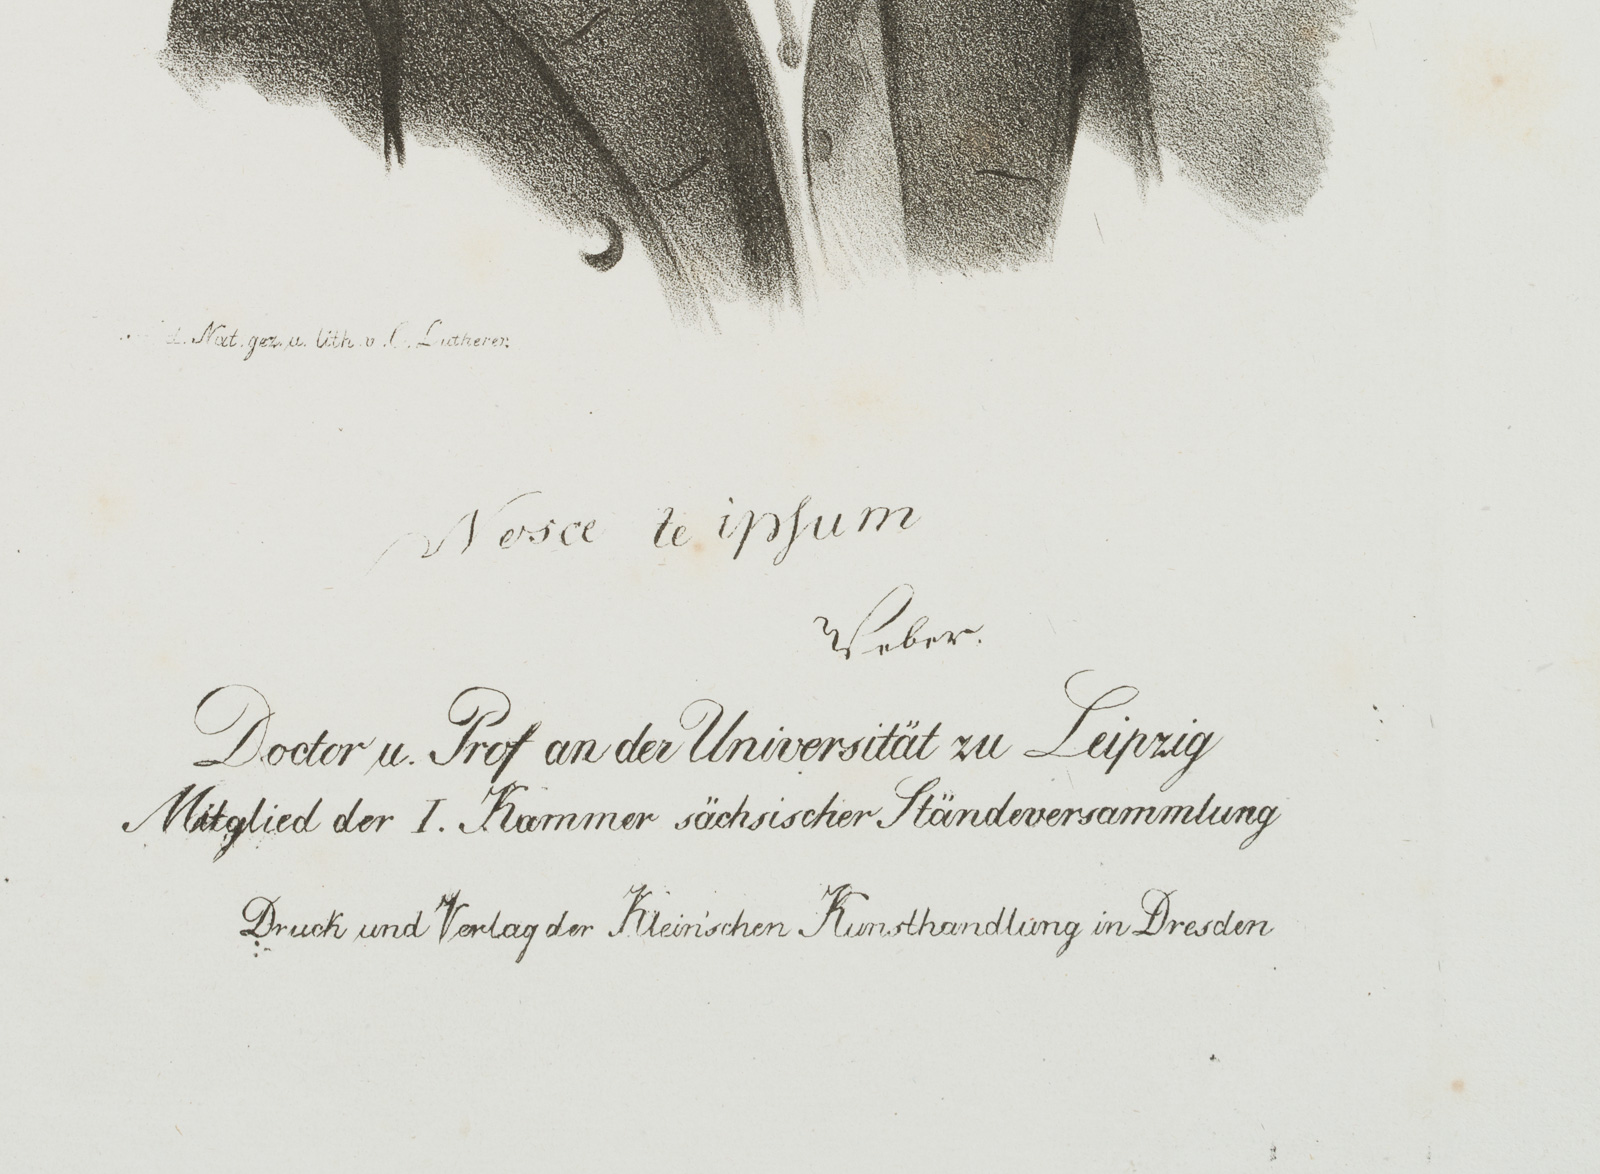 Nat. gez. u. lith. v. C. Lutherer.
Nosce te ipsum
Weber.
Doctor u. Prof an der Universität zu Leipzig
Mitglied der I. Kammer sächsischer Ständeversammlung
Druck und Verlag der Klein'schen Kunsthandlung in Dresden